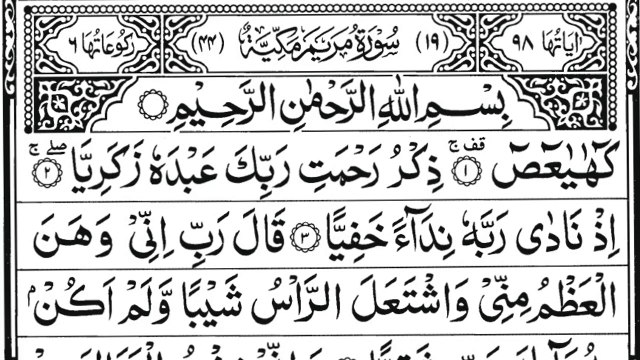 اٰيَاتُهَا ٩٨ (١٩) سُوْرَةُ مَرْيَمَ مَكِّيَّةٌ (٤٤) رُكُوْعَاتُهَا ٦
بِسْمِ اللّٰهِ الرَّحْمٰنِ الرَّحِيْمِ
كٓهٰيٰعٓصٓ ۚ قف ﴿١﴾ ذِكْرُ رَحْمَتِ رَبِّكَ عَبْدَهٗ زَكَرِيَّا ۖۚ ﴿٢﴾
اِذْ نَادٰى رَبَّهٗ نِدَآءً خَفِيًّا ﴿٣﴾ قَالَ رَبِّ اِنِّىْ وَهَنَ
الْعَظْمُ مِنِّىْ وَاشْتَعَلَ الرَّاْسُ شَيْبًا وَّلَمْ اَكُنْۢ